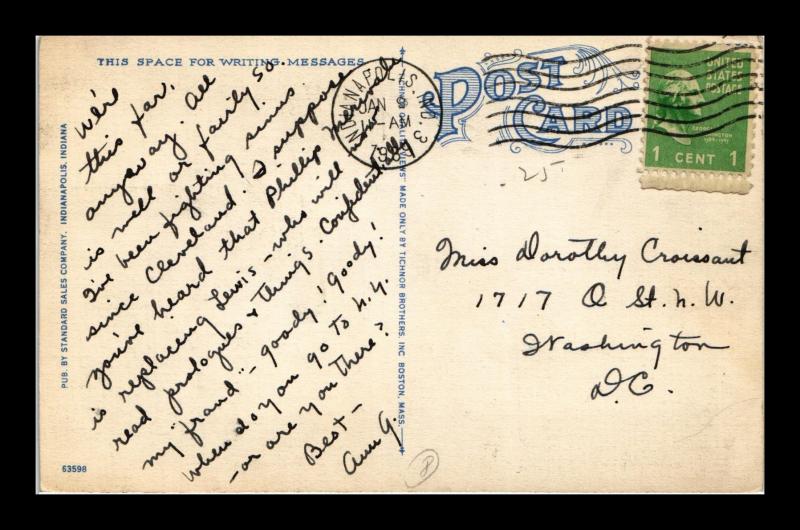 THIS SPACE FOR WRITING MESSAGES
POST CARD
INDIANAPOLIS, IND.
JAN 9
1 - AM
UNITED
STATES
POSTAGE
1 CENT 1
25
We're
this far,
anyway. All
is well or fairly so.
I've been fighting sinus
since Cleveland. I suppose
you've heard that Phillips Merivale
is replacing Lewis - who will now
read prologues & things. Confidentially
my "fraud" - goody! Goody!
When do you go to N.Y.
- or are you there?
Best -
Ann G.
Miss Dorothy Croissant
1717 Q St. N. W.
Washington
D.C.
PUB. BY STANDARD SALES COMPANY, INDIANAPOLIS, INDIANA
"TICHNOR QUALITY VIEWS" MADE ONLY BY TICHNOR BROTHERS, INC. BOSTON, MASS.
63598
8